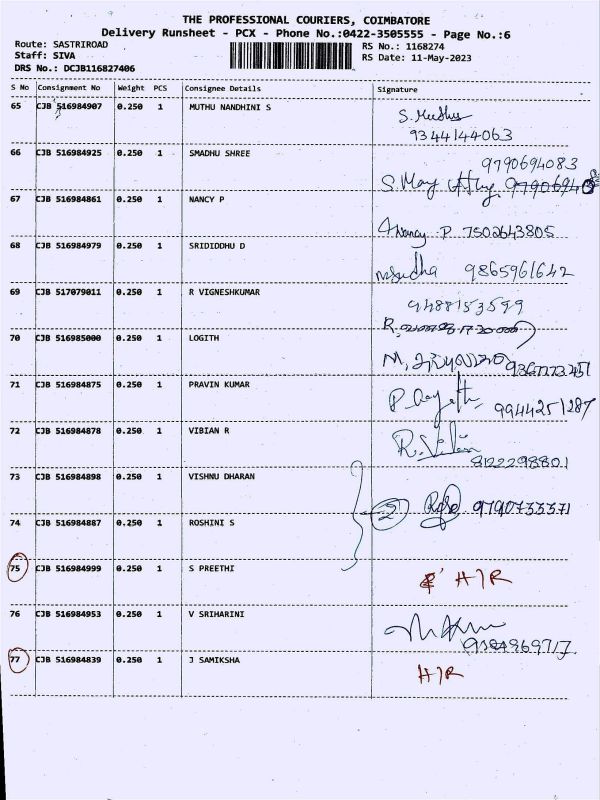 THE PROFESSIONAL COURIERS, COIMBATORE
Delivery Runsheet - PCX - Phone No.:0422-3505555 - Page No.:6
Route: SASTRIROAD RS No.: 1168274
Staff: SIVA RS Date: 11-May-2023
DRS No.: DCJB116827406
S No Consignment No Weight PCS Consignee Details Signature
65 CJB 516984907 0.250 1 MUTHU NANDHINI S S. Muthu
9344144063
66 CJB 516984925 0.250 1 SMADHU SHREE 9790694083
67 CJB 516984861 0.250 1 NANCY P
Nancy P 7502643805
68 CJB 516984979 0.250 1 SRIDIDDHU D
9865961642
69 CJB 517079011 0.250 1 R VIGNESHKUMAR 9488153599
70 CJB 516985000 0.250 1 LOGITH
71 CJB 516984875 0.250 1 PRAVIN KUMAR
9944251287
72 CJB 516984878 0.250 1 VIBIAN R
8122298801
73 CJB 516984898 0.250 1 VISHNU DHARAN
74 CJB 516984887 0.250 1 ROSHINI S
75 CJB 516984999 0.250 1 S PREETHI H/R
76 CJB 516984953 0.250 1 V SRIHARINI
77 CJB 516984839 0.250 1 J SAMIKSHA H/R